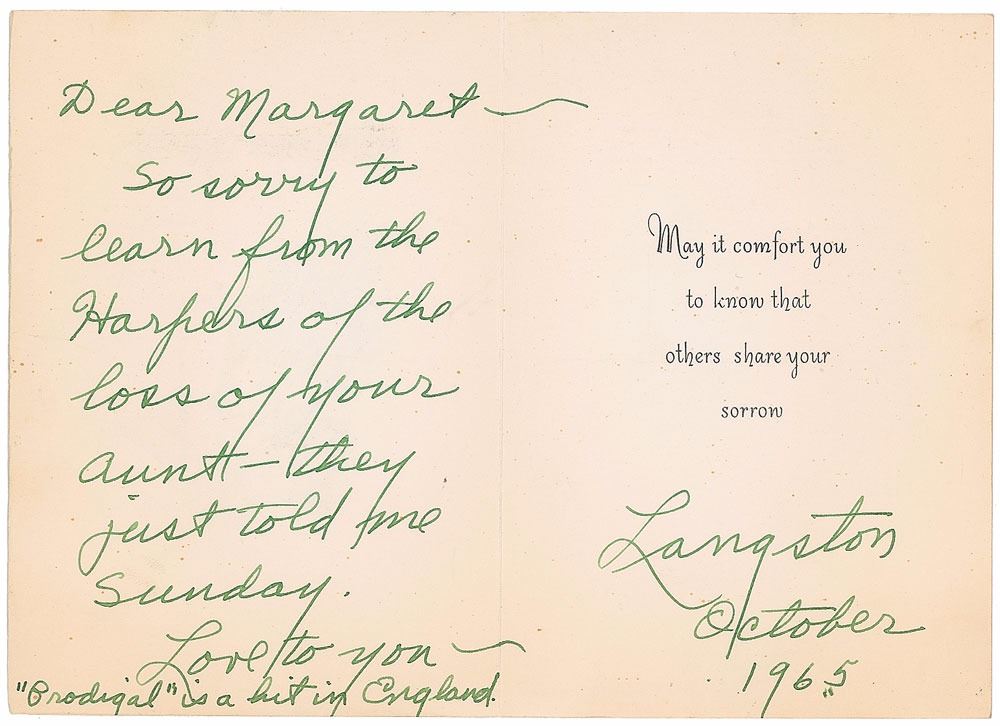 Dear Margaret —
So sorry to
learn from the
Harpers of the
loss of your
aunt — they
just told me
Sunday.
Love to you —
"Prodigal" is a hit in England.
May it comfort you
to know that
others share your
sorrow
Langston
October
1965